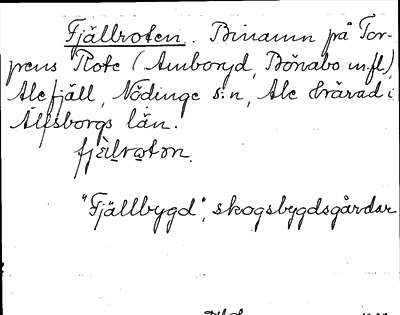 Fjällroten. Binamn på Tor-
pens Rote (Amboryd, Bönabo m.fl),
Alefjäll, Nödinge s:n, Ale härad i
Älfsborgs län.
fjällroten.
"Fjällbygd", skogsbygdsgårdar